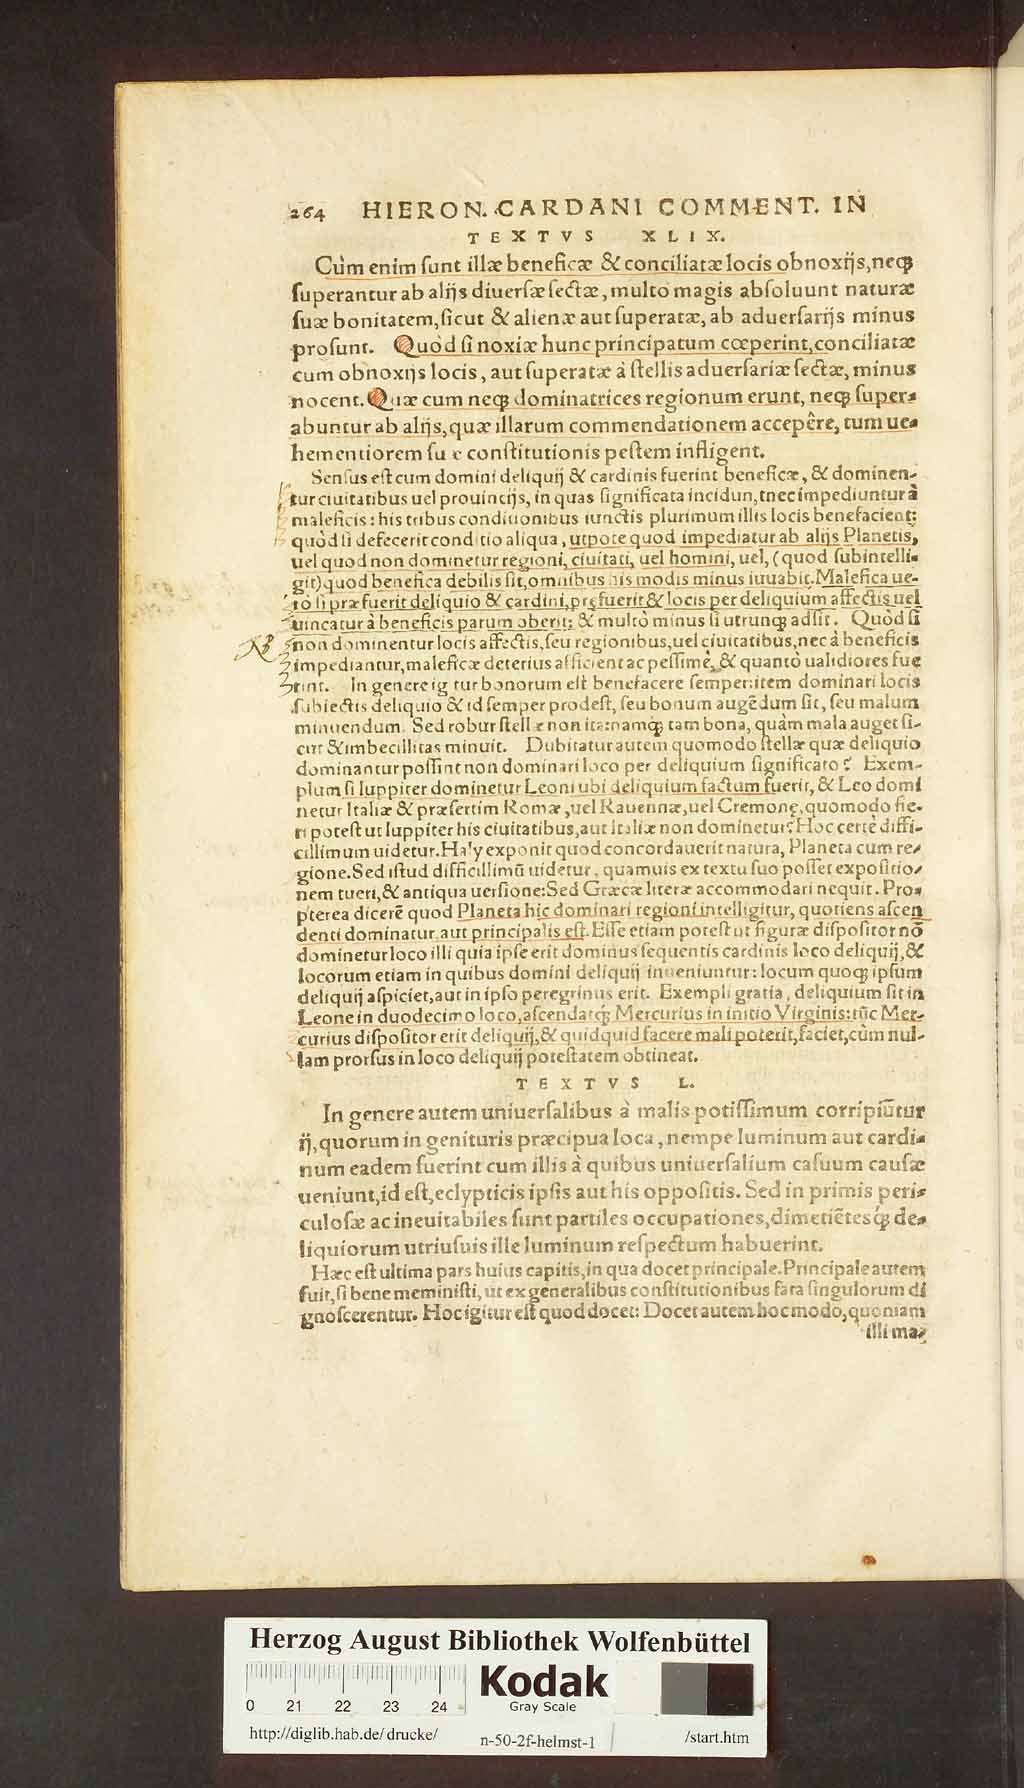 264 HIERON. CARDANI COMMENT. IN
TEXTVS XLIX.
Cùm enim ſunt illæ beneficæ & conciliatæ locis obnoxijs, neq́;
ſuperantur ab alijs diuerſæ ſectæ, multò magis abſoluunt naturæ
ſuæ bonitatem, ſicut & alienæ aut ſuperatæ, ab aduerſarijs minus
proſunt. Quòd ſi noxiæ hunc principatum cœperint, conciliatæ
cum obnoxijs locis, aut ſuperatæ à ſtellis aduerſariæ ſectæ, minus
nocent. Quæ cum neq; dominatrices regionum erunt, neq; ſuper-
abuntur ab alijs, quæ illarum commendationem accepêre, tum ue-
hementiorem ſuæ conſtitutionis peſtem infligent.
Senſus eſt cum domini deliquij & cardinis fuerint beneficæ, & dominen-
tur ciuitatibus uel prouincijs, in quas ſignificata incidun,t nec impediuntur à
maleficis: his tribus conditionibus iunctis plurimum illis locis benefacient:
quòd ſi defecerit conditio aliqua, utpote quod impediatur ab alijs Planetis,
uel quod non dominetur regioni, ciuitati, uel homini, uel, (quod ſubintelli-
git) quod benefica debilis ſit, omnibus his modis minus iuuabit. Malefica ue-
rò ſi præfuerit deliquio & cardini, prȩfuerit & locis per deliquium affectis uel
uincatur à beneficis parum oberit: & multò minus ſi utrunq; adſit. Quòd ſi
non dominentur locis affectis, ſeu regionibus, uel ciuitatibus, nec à beneficis
impediantur, maleficæ deterius afficient ac peſſimè, & quantò ualidiores fue
rint. In genere igitur bonorum eſt benefacere ſemper: item dominari locis
ſubiectis deliquio & id ſemper prodeſt, ſeu bonum augēdum ſit, ſeu malum
minuendum. Sed robur ſtellæ non ita: namq; tam bona, quàm mala auget ſi-
cut & imbecillitas minuit. Dubitatur autem quomodo ſtellæ quæ deliquio
dominantur poſſint non dominari loco per deliquium ſignificato? Exem-
plum ſi Iuppiter dominetur Leoni ubi deliquium factum fuerit, & Leo domi
netur Italiæ & præſertim Romæ, uel Rauennæ, uel Cremonȩ, quomodo fie-
ri poteſt ut Iuppiter his ciuitatibus, aut Italiæ non dominetur? Hoc certè diffi-
cillimum uidetur. Haly exponit quod concordauerit natura, Planeta cum re-
gione. Sed iſtud difficillimū uidetur, quamuis ex textu ſuo poſſet expoſitio-
nem tueri, & antiqua uerſione: Sed Græcæ literæ accommodari nequit. Pro-
pterea dicerē quod Planeta hic dominari regioni intelligitur, quotiens aſcen
denti dominatur, aut principalis eſt. Eſſe etiam poteſt ut figuræ diſpoſitor nō
dominetur loco illi quia ipſe erit dominus ſequentis cardinis loco deliquij, &
locorum etiam in quibus domini deliquij inueniuntur: locum quoq; ipſum
deliquij aſpiciet, aut in ipſo peregrinus erit. Exempli gratia, deliquium ſit in
Leone in duodecimo loco, aſcendatq́; Mercurius in initio Virginis: tūc Mer-
curius diſpoſitor erit deliquij, & quidquid facere mali poterit, faciet, cùm nul-
lam prorſus in loco deliquij poteſtatem obtineat.
TEXTVS L.
In genere autem uniuerſalibus à malis potiſſimum corripiūtur
ij, quorum in genituris præcipua loca, nempe luminum aut cardi-
num eadem fuerint cum illis à quibus uniuerſalium caſuum cauſæ
ueniunt, id eſt, eclypticis ipſis aut his oppoſitis. Sed in primis peri-
culoſæ ac ineuitabiles ſunt partiles occupationes, dimetiētesq́; de-
liquiorum utriuſuis ille luminum reſpectum habuerint.
Hæc eſt ultima pars huius capitis, in qua docet principale. Principale autem
fuit, ſi bene meminiſti, ut ex generalibus conſtitutionibus fata ſingulorum di
gnoſcerentur. Hoc igitur eſt quod docet: Docet autem hoc modo, quoniam
illi ma-
Herzog August Bibliothek Wolfenbüttel
0 21 22 23 24
Kodak
Gray Scale
http://diglib.hab.de/drucke/ n-50-2f-helmst-1 /start.htm